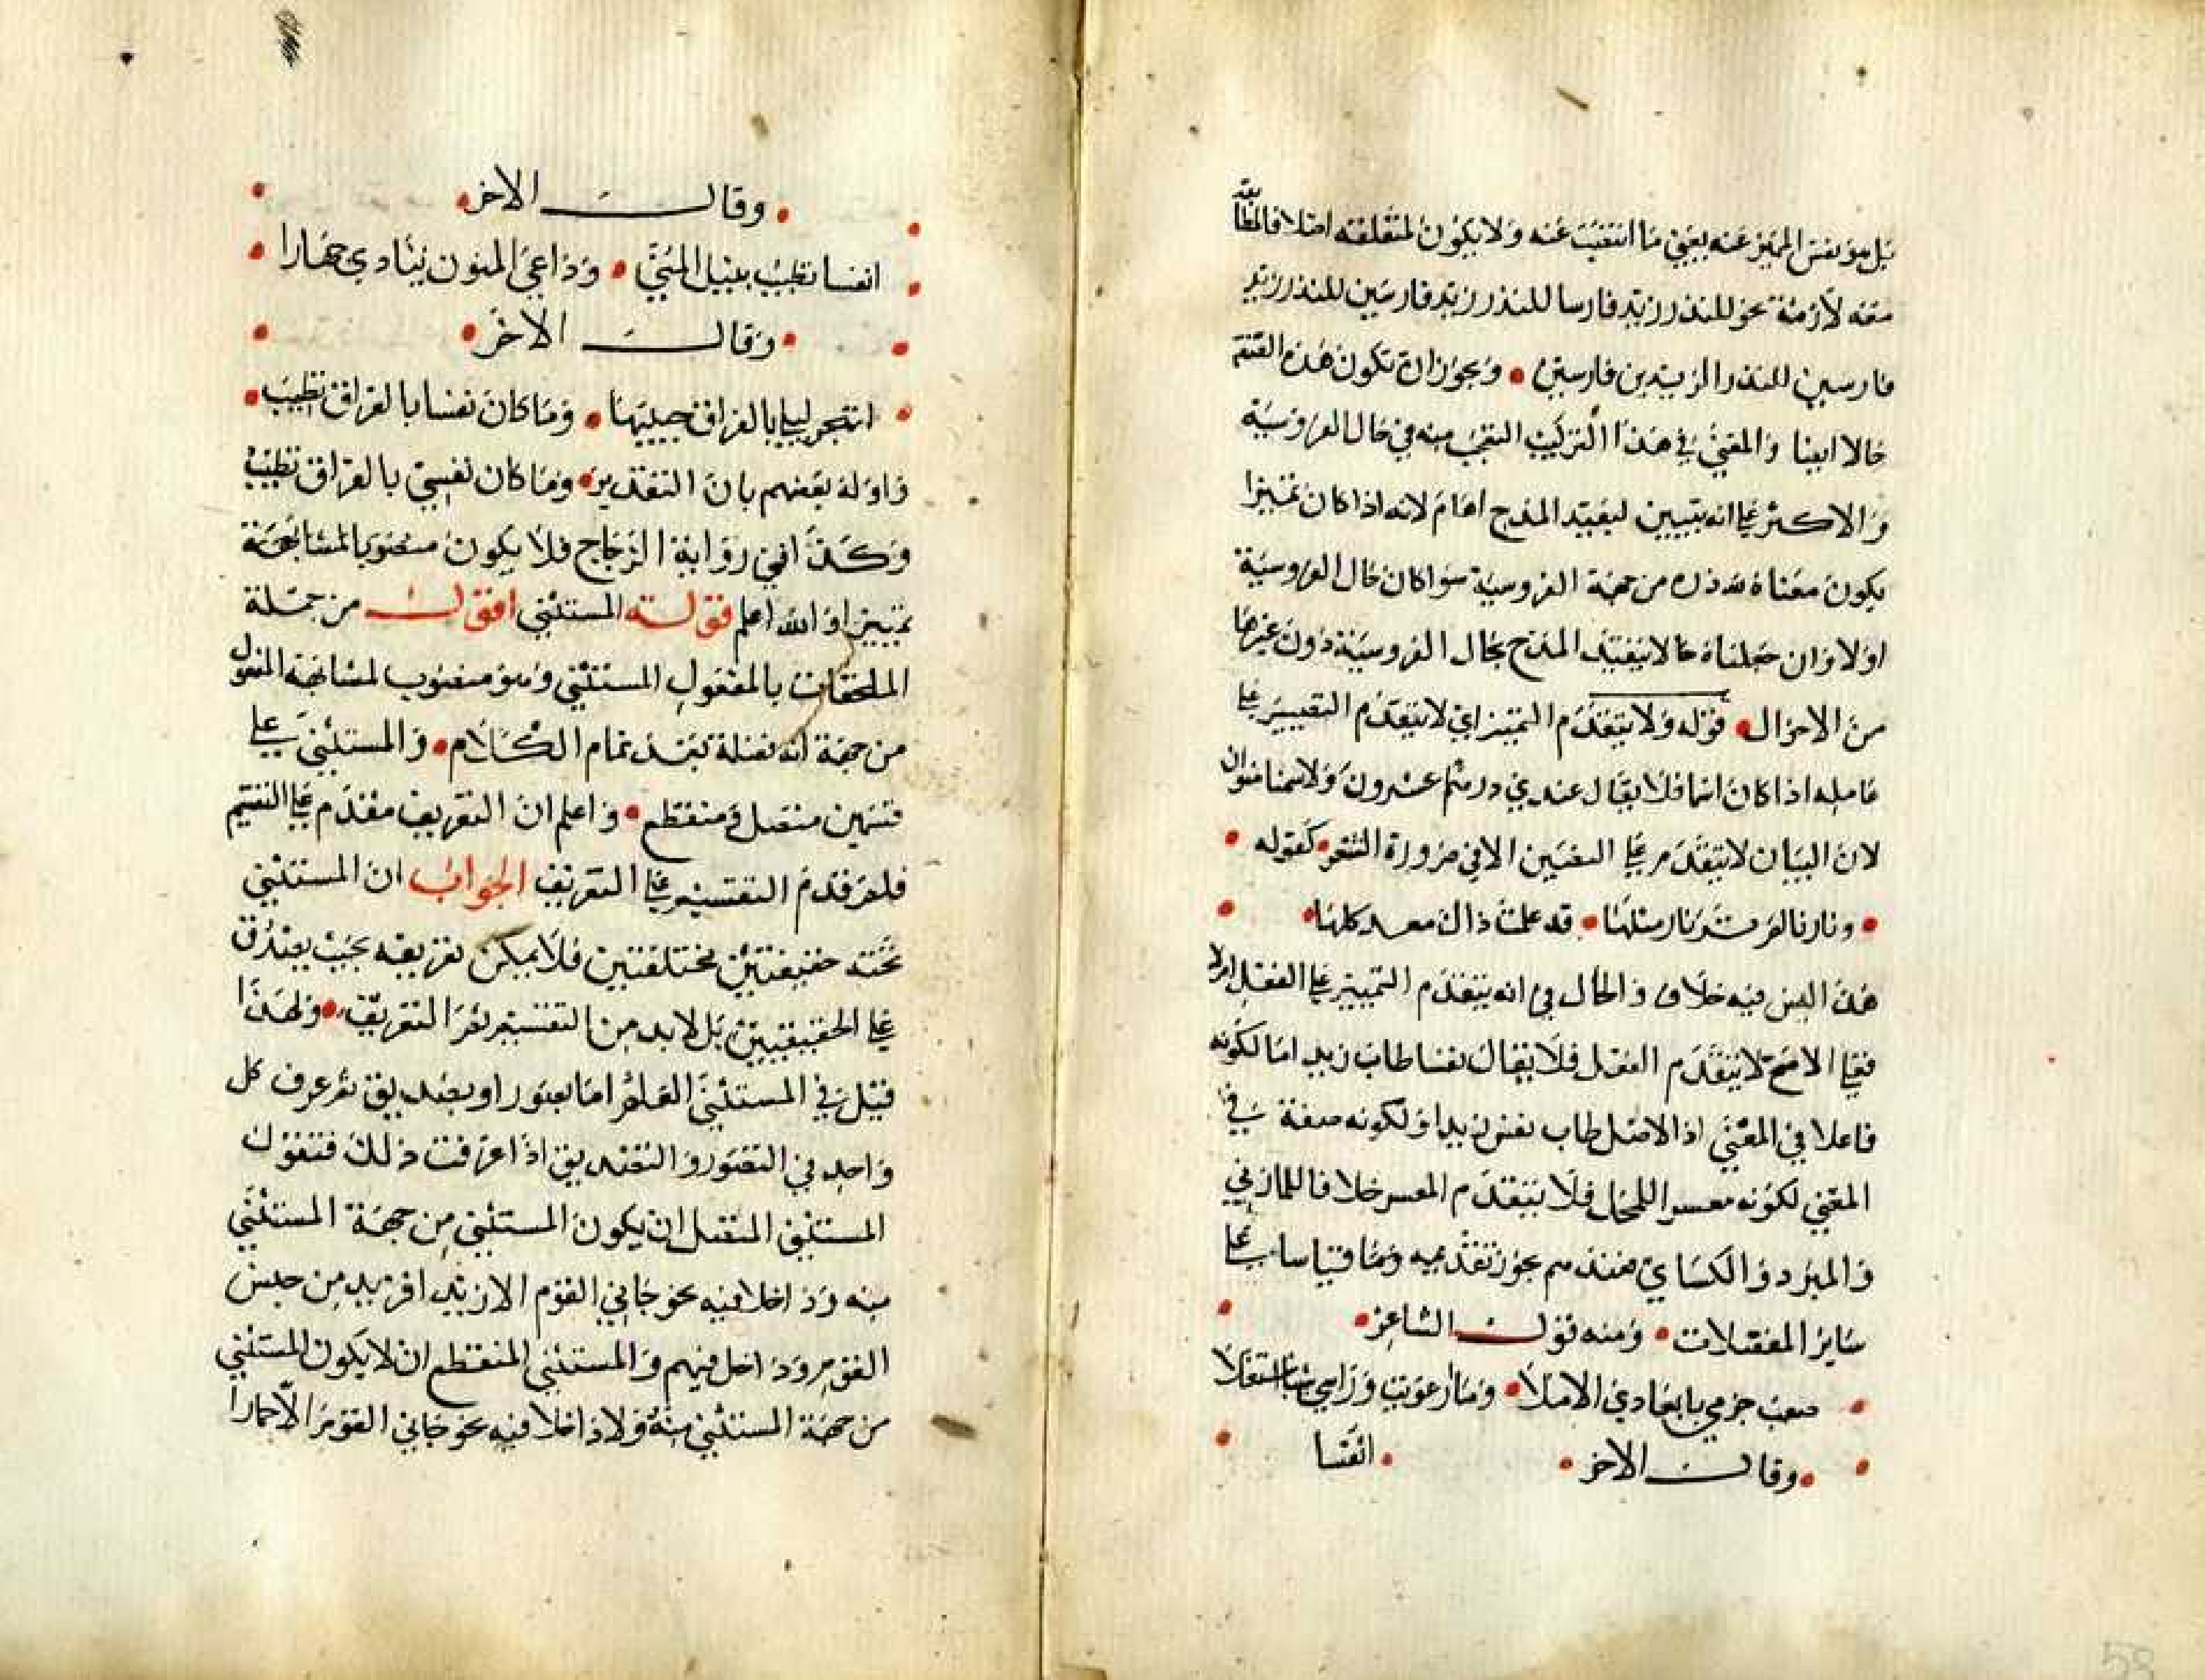 بل هو نفس المميز عنه يعني ما انتصب عنه ولا يكون لمتعلقه اصلا فالمطابقة
معه لازمة نحو لله در زيد فارسا لله در زيد فارسين لله در زيد
فارسين لله در الزيدين فارسين • ويجوز ان تكون هذه القسم
حالا ايضا والمعنى في هذا التركيب التعجب منه في حال الفروسية
والاكثر على انه تبيين ليفيد المدح العام لانه اذا كان تمييزا
يكون معناه لله دره من جهة الفروسية سوا كان حال الفروسية
اولا وان جعلناه حالا يفيد المدح بحال الفروسية دون غيرها
من الاحوال • قوله ولا يتقدم التمييز اي لا يتقدم التمييز على
عامله اذا كان اسما فلا يقال عندي درهم عشرون ولا سمنا منوان
لان البيان لا يتقدم على المبين الا في ضرورة الشعر • كقوله •
• ونارنا لم ير نار مثلها • قد علمت ذاك معد كلها •
هذا ليس فيه خلاف والحال في انه يتقدم التمييز على الفعل ام لا
فعلى الاصح لا يتقدم الفعل فلا يقال نفسا طاب زيد اما لكونه
فاعلا في المعنى اذ الاصل طاب نفس زيد او لكونه صفة في
المعنى لكونه مفسرا للمحل فلا يتقدم المفسر خلافا للمازني
والمبرد والكساي فعندهم يجوز تقديمه وهما قياسا على
ساير الفضلات • ومنه قول الشاعر •
• ضيعت حزمي بابعادي الاملا • وما ارعويت وراسي شيبا اشتعلا
• وقال الاخر • • انفسا
• وقال الاخر •
• انفسا تطيب بنيل المنى • وداعي المنون ينادي جهارا •
• وقال الاخر •
• اتهجر ليلى بالفراق حبيبها • وما كان نفسا بالفراق تطيب •
واوله بعضهم بان التقدير • وما كان نفسي بالفراق تطيب
وكذا في رواية الزجاج فلا يكون منصوبا لمشابهة
تمييز او الله اعلم قوله المستثنى اقول من جملة
الملحقات بالمفعول المستثنى وهو منصوب لمشابهة المفعول
من جهة انه فضلة بعد تمام الكلام • والمستثنى على
قسمين متصل ومنقطع • واعلم ان التعريف مقدم على التقسيم
فلم قدم التقسيم على التعريف الجواب ان المستثنى
تحته حقيقتين مختلفتين فلا يمكن تعريفه بحيث يصدق
على الحقيقتين بل لا بد من التقسيم ثم التعريف • ولهذا
قيل في المستثنى العلم اما تصور او تصديق ثم عرف كل
واحد في التصور والتصديق اذا عرفت ذلك فتقول
المستثنى المتصل ان يكون المستثنى من جهة المستثنى
منه وداخلا فيه نحو جاني القوم الا زيدا فزيد من جنس
القوم وداخل فيهم والمستثنى المنقطع ان لا يكون المستثنى
من جهة المستثنى منه ولا داخلا فيه نحو جاني القوم الا حمارا